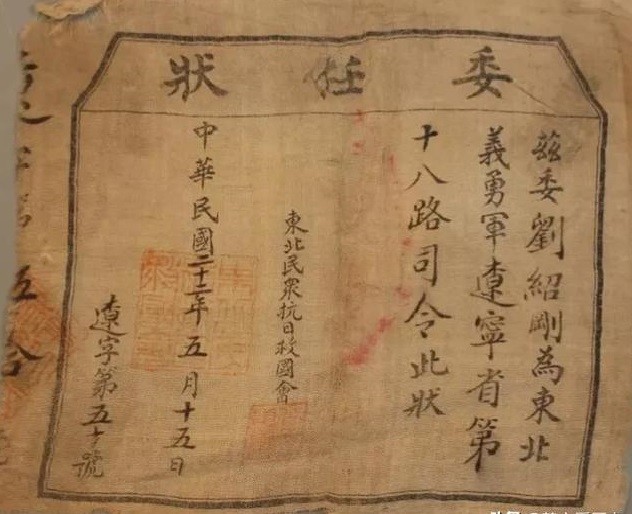 委任狀
茲委劉紹剛為東北
義勇軍遼寧省第
十八路司令此狀
東北民眾抗日救國會
中華民國二十二年五月十五日
遼寧第五十號